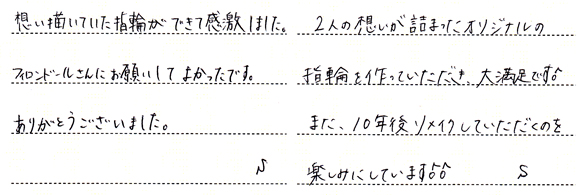 想い描いていた指輪ができて感激しました。
フィロンドールさんにお願いして よかったです。
ありがとうございました。
S
2人の想いが詰まったオリジナルの
指輪を作っていただき、大満足です♡♡
また、10年後リメイクしていただくのを
楽しみにしています♡♡
S